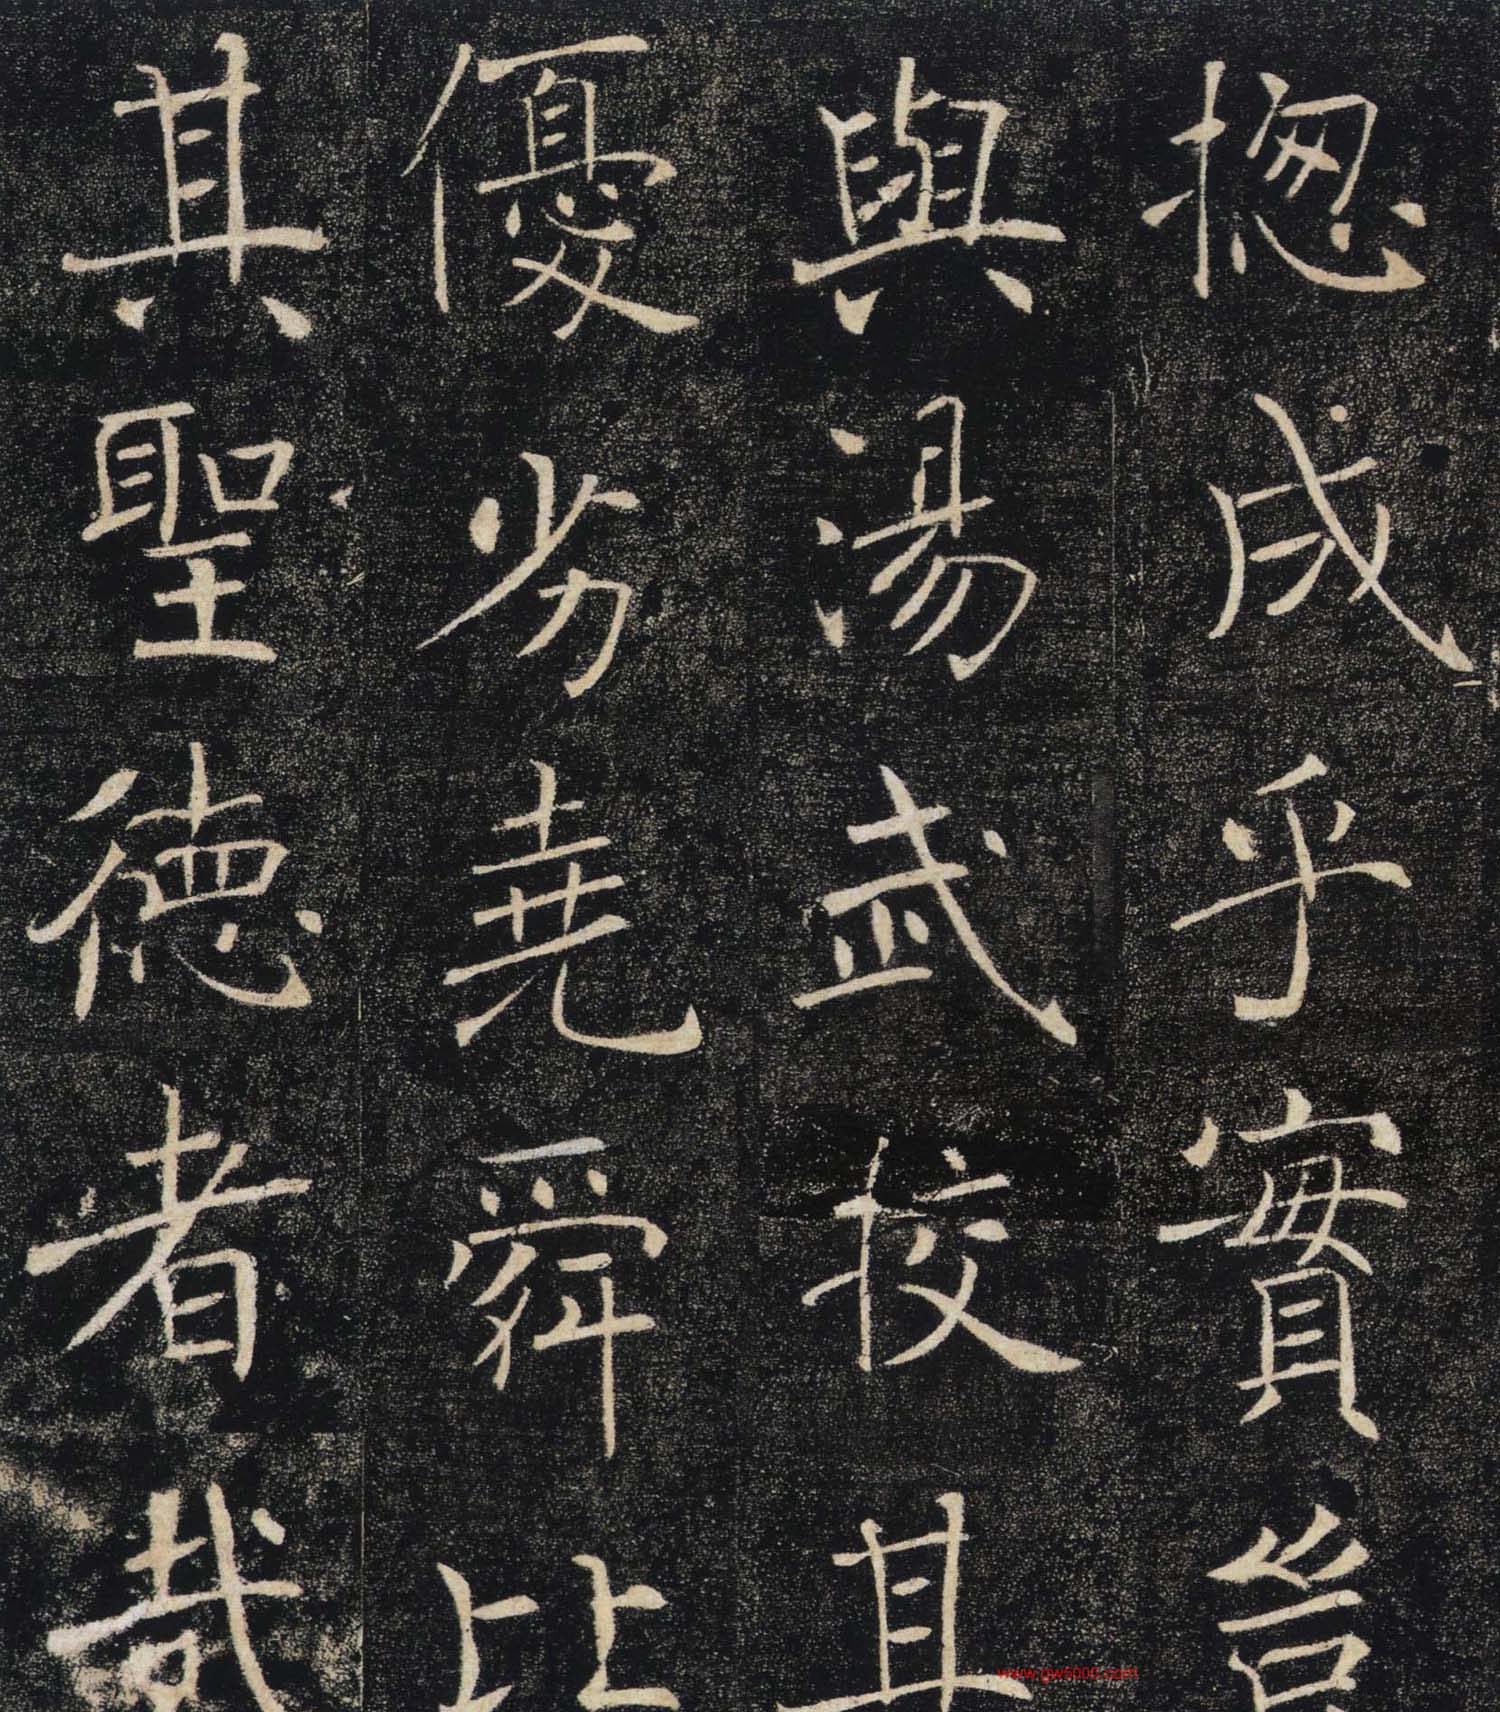 揔成乎實豈
與湯武校其
優劣堯舜比
其聖德者哉
www.gw5000.com